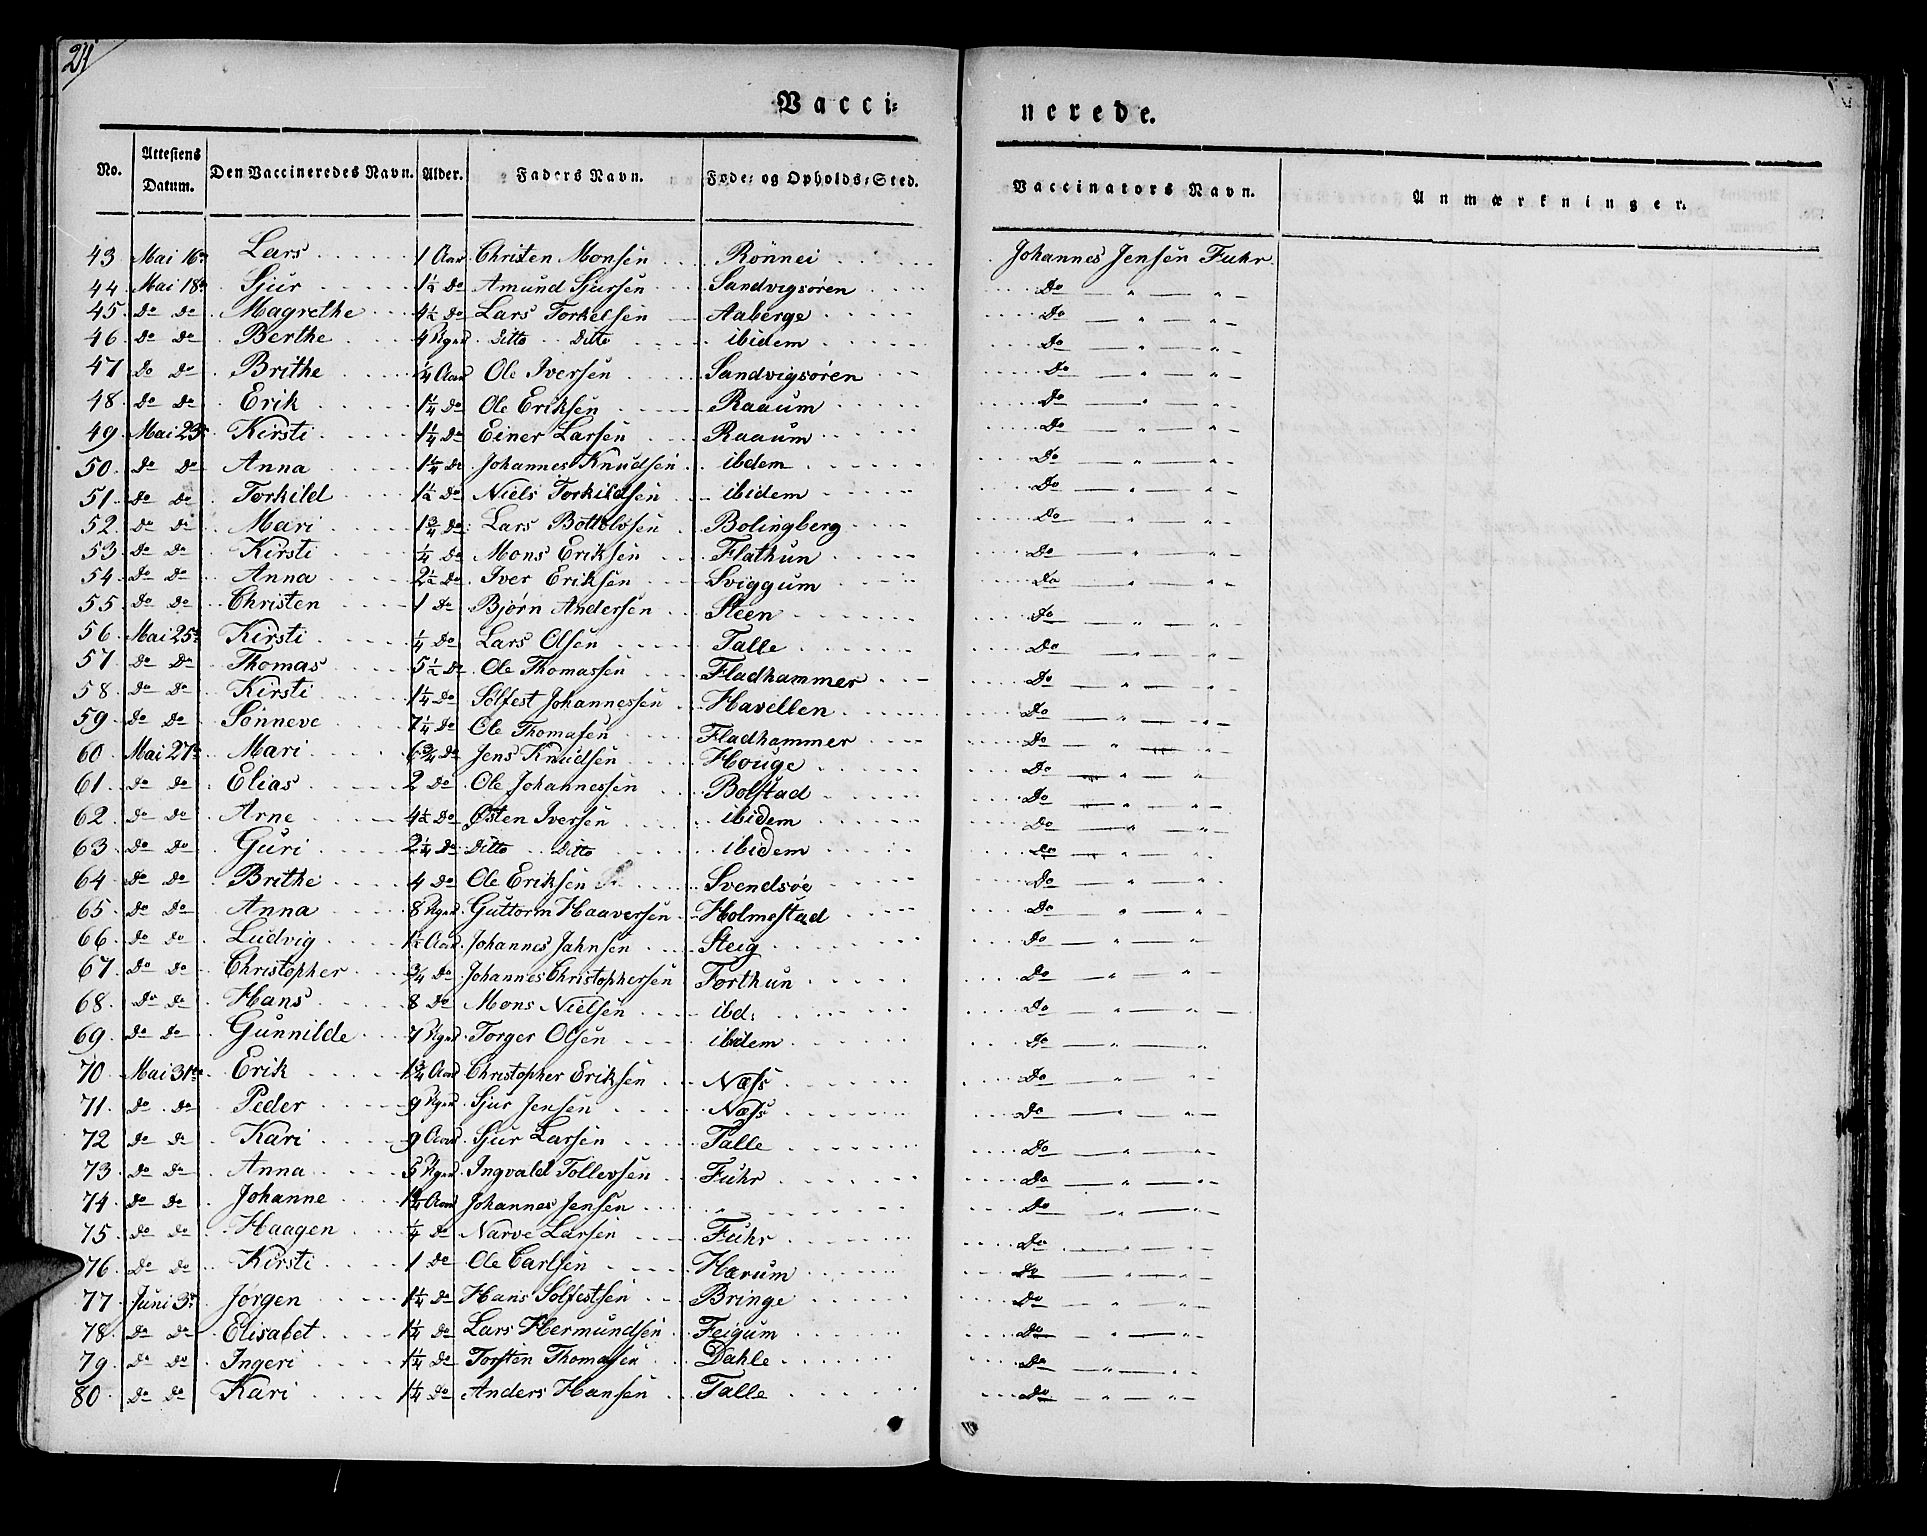 24
Vacci:
nerede.
No. Attestens Datum. Den Vaccineredes Navn. Alder. Faders Navn. Føde: og Opholds:Sted. Vaccinators Navn. Anmærkninger.
43 Mai 16 Lars 1 Aar Christen Monsen Rönnei Johannes Jensen Fuhr
44 Mai 18 Sjur 1½ Do Amund Sjursen Sandvigsøren Do — " — " —
45 Do Do Magrethe 4½ Do Lars Torkelsen Aaberge Do — " — " —
46 Do Do Berthe 4 Ditto Ditto ibidem Do — " — " —
47 Do Do Brithe ¼ Aar Ole Iversen Sandvigsøren Do — " — " —
48 Do Do Erik 1¼ Do Ole Eriksen Raaum Do — " — " —
49 Mai 23 Kirsti 1¼ Do Einer Larsen Raaum Do — " — " —
50 Do Do Anna 1¼ Do Johannes Knudsen ibdem Do — " — " —
51 Do Do Torkild 1½ Do Niels Torkildsen ibidem Do — " — " —
52 Do Do Mari 1¾ Do Lars Bottolvsen Bolingberg Do — " — " —
53 Do Do Kirsti ¼ Do Mons Eriksen Flathun Do — " — " —
54 Do Do Anna 2½ Do Iver Eriksen Sviggum Do — " — " —
55 Do Do Christen 1 Do Bjørn Andersen Steen Do — " — " —
56 Mai 25 Kirsti ¼ Do Lars Olsen Talle Do — " — " —
57 Do Do Thomas 5½ Do Ole Thomassen Fladhammer Do — " — " —
58 Do Do Kirsti 1¼ Do Solfest Johannessen Havellen Do — " — " —
59 Do Do Sönneve 7¼ Do Ole Thomasen Fladhammer Do — " — " —
60 Mai 27 Mari 6¾ Do Jens Knudsen Houge Do — " — " —
61 Do Do Elias 2 Do Ole Johannessen Bolstad Do — " — " —
62 Do Do Arne 4½ Do Østen Iversen ibidem Do — " — " —
63 Do Do Guri 2¼ Do Ditto Ditto ibidem Do — " — " —
64 Do Do Brithe 4 Do Ole Eriksen Svendsøe Do — " — " —
65 Do Do Anna 8 Guttorm Haaversen Holmestad Do — " — " —
66 Do Do Ludvig 1½ Aar Johannes Jahnsen Steig Do — " — " —
67 Do Do Christopher ¾ Do Johannes Christophersen Forthun Do — " — " —
68 Do Do Hans 8 Do Mons Nielsen ibd: Do — " — " —
69 Do Do Gunnilde 7 Torger Olsen ibidem Do — " — " —
70 Mai 31 Erik 1¾ Aar Christopher Eriksen Næss Do — " — " —
71 Do Do Peder 9 Sjur Jensen Næss Do — " — " —
72 Do Do Kari 9 Aar Sjur Larsen Talle Do — " — " —
73 Do Do Anna 5 Ingvald Tollevsen Fuhr Do — " — " —
74 Do Do Johanne Aar Johannes Jensen " " Do — " — " —
75 Do Do Haagen ¼ Do Narve Larsen Fuhr Do — " — " —
76 Do Do Kirsti 1 Do Ole Carlsen Hærum Do — " — " —
77 Juni 3 Jørgen 1¼ Do Hans Solfestsen Bringe Do — " — " —
78 Do Do Elisabet 1¼ Do Lars Hermundsen Feigum Do — " — " —
79 Do Do Ingeri 1¼ Do Torsten Thomasen Dahle Do — " — " —
80 Do Do Kari 1¼ Do Anders Hansen Talle Do — " — " —